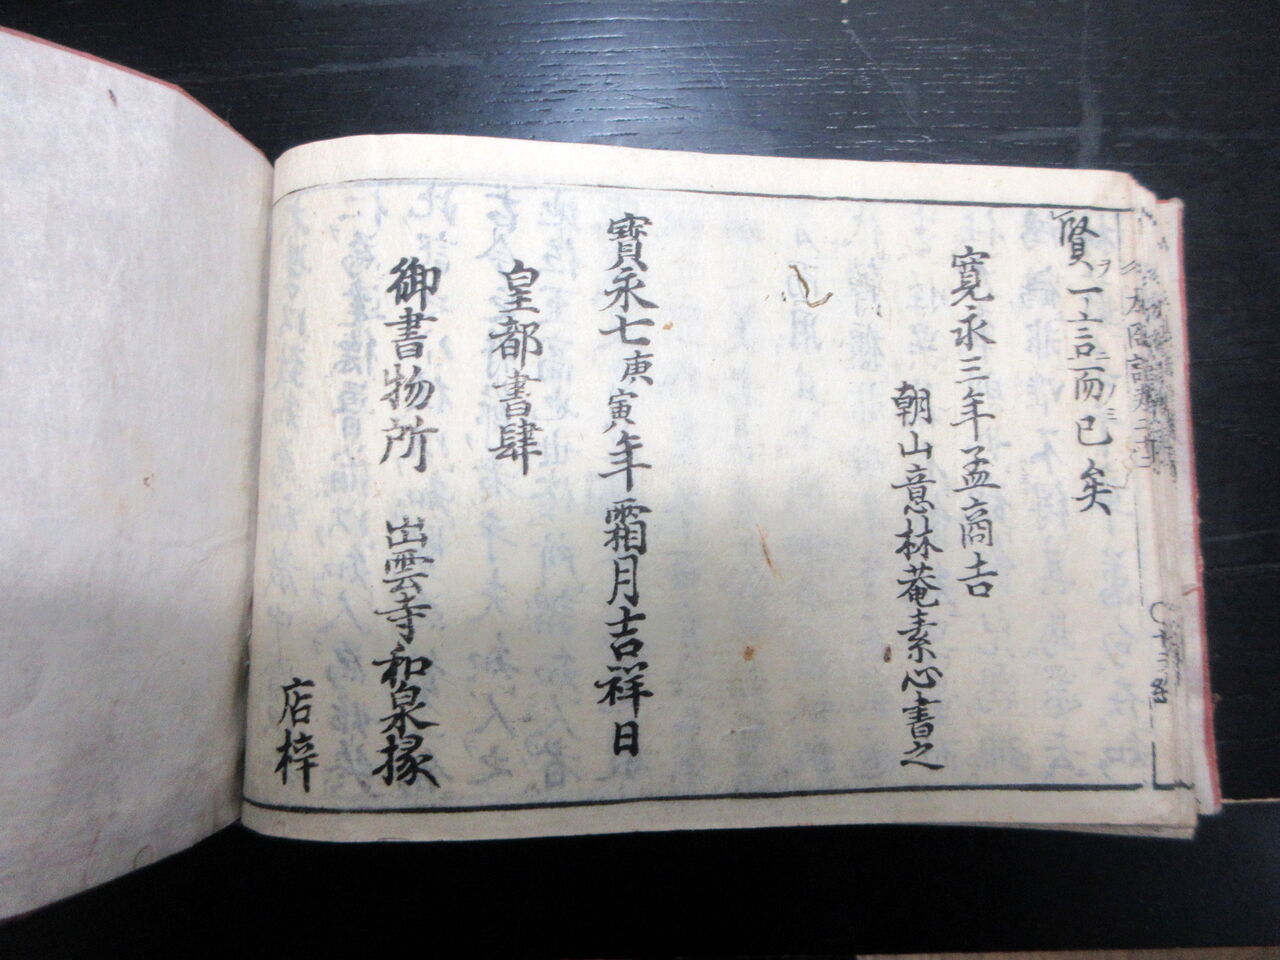 賢ヲ一言而已矣
寛永三年孟商吉
朝山意林菴素心書之
寳永七庚寅年霜月吉祥日
皇都書肆
御書物所 出雲寺和泉掾
店梓